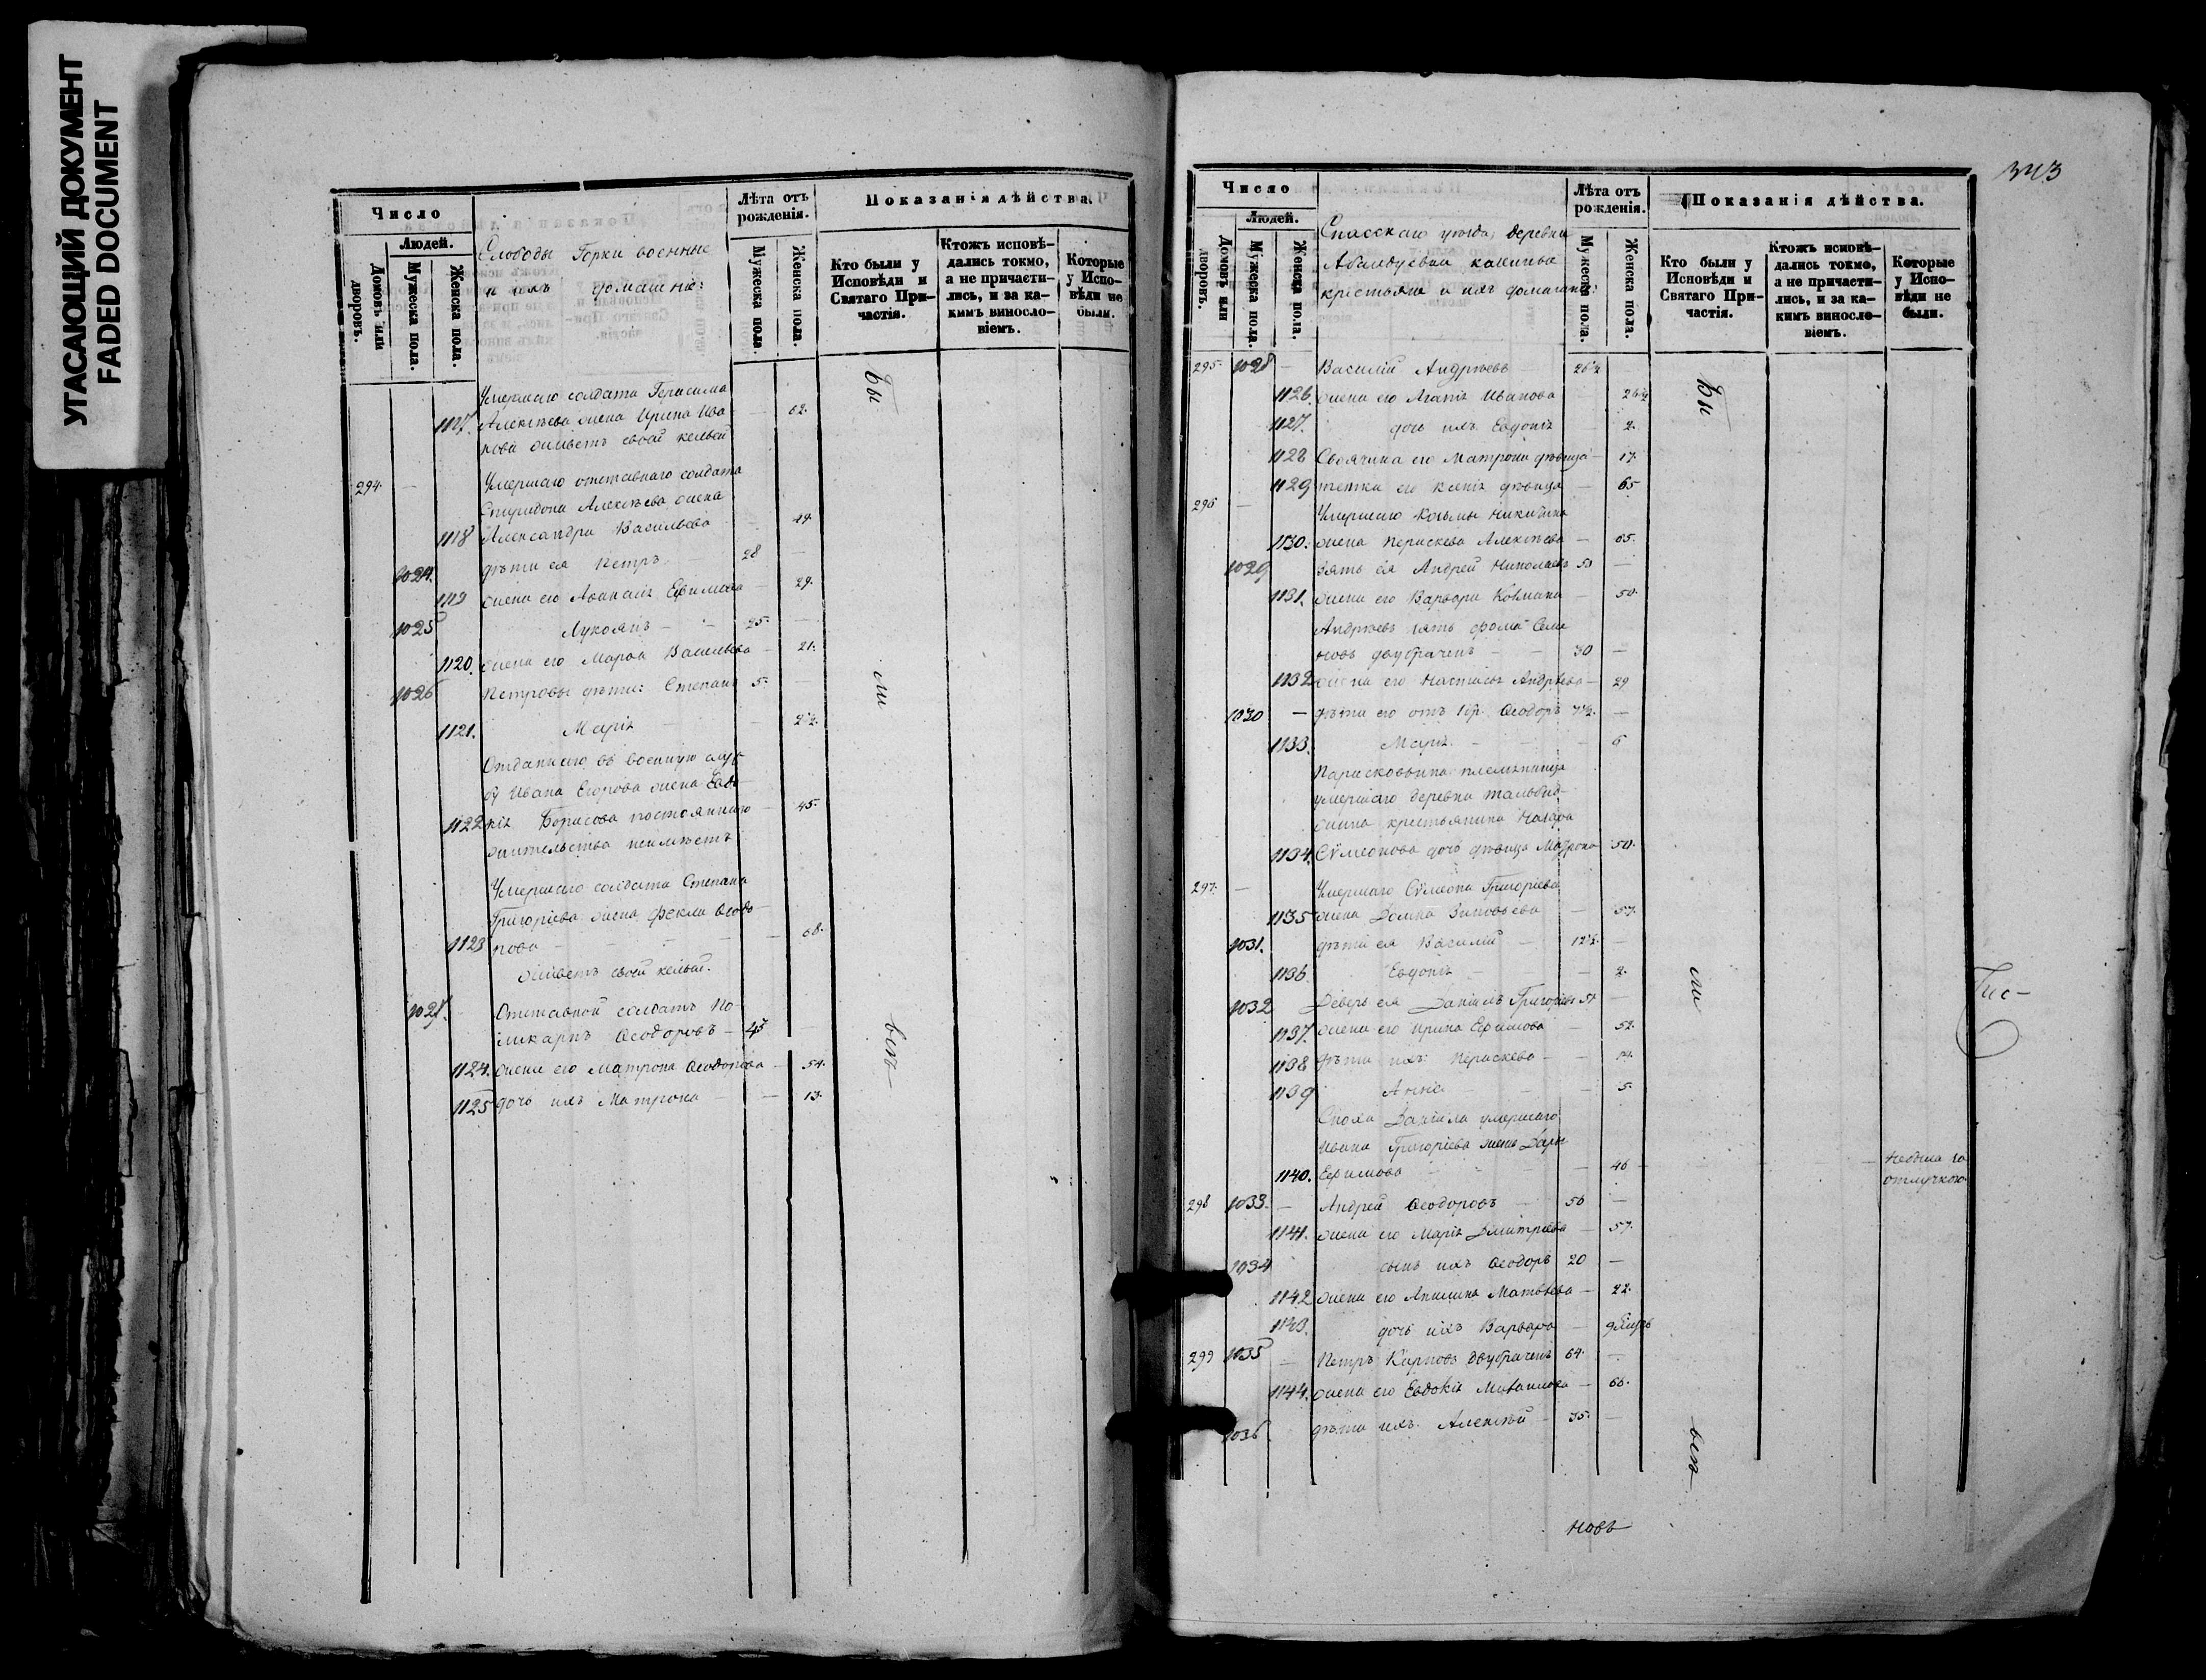 УГАСАЮЩИЙ ДОКУМЕНТ
FADED DOCUMENT
Число
Людей.
Домовъ или дворовъ.
Мужеска пола.
Женска пола.
Слободы Горки военные
и ихъ домашніе:
Лѣта отъ рожденія.
Мужеска пола.
Женска пола.
Показанія дѣйства.
Кто были у Исповѣди и Святаго Причастія.
Ктожъ исповѣдались токмо, а не причастились, и за какимъ винословіемъ.
Которые у Исповѣди не были.
Умершаго солдата Герасима
1117. Алексѣева жена Ирина Ива- — 62.
нова живетъ своей кельей
294. — Умершаго отставнаго солдата
Спиридона Алексѣева жена
1118 Александра Васильева
1024. дѣти ея Петръ 28 —
1119 жена его Аѳанасія Ефимова — 29.
1025 Лукоянъ — 25. —
1120. жена его Марѳа Васильева — 21.
1026 Петровы дѣти: Степанъ 5. —
1121. Марія — 2½.
Отданнаго въ военную служ-
бу Ивана Егорова жена Евдо-
1122 кія Борисова постояннаго — 45.
жительства неимѣетъ
Умершаго солдата Степана
Григорьева жена Фекла
1123 — 68.
живетъ своей кельей.
1027. Отставной солдатъ По-
ликарпъ Ѳеодоровъ — 45
1124. жена его Матрона — 54.
1125 дочь ихъ Матрона — 13.
Бы
ли
вст
343
Число
Людей.
Домовъ или дворовъ.
Мужеска пола.
Женска пола.
Спасскаго уѣзда, деревни
крестьяне и ихъ домашніе:
Лѣта отъ рожденія.
Мужеска пола.
Женска пола.
Показанія дѣйства.
Кто были у Исповѣди и Святаго Причастія.
Ктожъ исповѣдались токмо, а не причастились, и за какимъ винословіемъ.
Которые у Исповѣди не были.
295. 1028 — Василій Андреевъ 26½
1126. жена его Агапія Иванова — 26½
1127. дочь ихъ Евдокія — 2.
1128 Своячина его Матрона дѣвица — 17.
1129 тетка его Ксенія дѣвица — 65
296 — Умершаго Козьмы Никитина
1130. жена Перасκева Алексѣева — 65.
1029 зять ея Андрей Николаевъ 53 —
1131. жена его Варвара Козмина — 50.
Андреевъ зять Фома Симе-
новъ двубраченъ — 30 —
1132 жена его Настасья Андреева — 29
1030 — дѣти его отъ 1 бр. Ѳеодоръ 7½. —
1133. Марія. — 6
племянница
умершаго деревни
крестьянина Назара
1134. Сѵмеонова дочь дѣвица Матрона 50.
297. — Умершаго Сѵмеона Григорьева
1135 жена Домна Зиновьева — 57.
1031. дѣти ея Василій — 12½. —
1136 Евдокія — 2.
1032 Деверь ея Даніилъ Григорьевъ —
1137. жена его Ирина Ефимова — 52.
1138 дѣти ихъ: Перасκева — 14.
1139 Анна — 5.
Сноха Даніила умершаго
Ивана Григорьева жена Дарья
1140. Ефимова — 46 — Небыла за
отлучкою.
298 1033. — Андрей Ѳеодоровъ — 56 —
1141. жена его Марія Дмитріева — 57.
1034 сынъ ихъ Ѳеодоръ 20 —
1142 жена его Акилина Матвѣева — 22.
1143. дочь ихъ Варвара —
299 1035 — Петръ Карповъ двубраченъ 64. —
1144. жена его Евдокія Михаилова — 66.
1036. дѣти ихъ. Алексѣй — 35. —
Бы
ли
вст
новъ